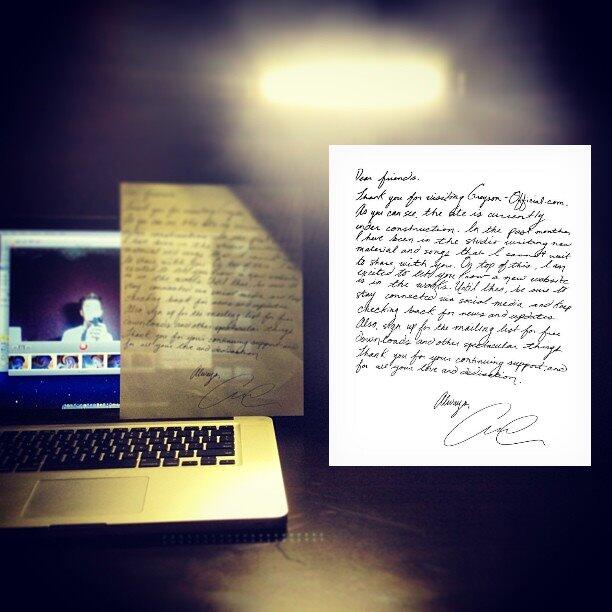 Dear friends,
Thank you for visiting Greyson-Official.com.
As you can see, the site is currently
under construction. In the past months
I have been in the studio writing new
material and songs that I cannot wait
to share with you. On top of this, I am
excited to let you know a new website
is in the works. Until then, be sure to
stay connected via social media and keep
checking back for news and updates
Also, sign up for the mailing list for free
downloads and other spectacular things
Thank you for your continuing support, and
for all your love and dedication.
Always,